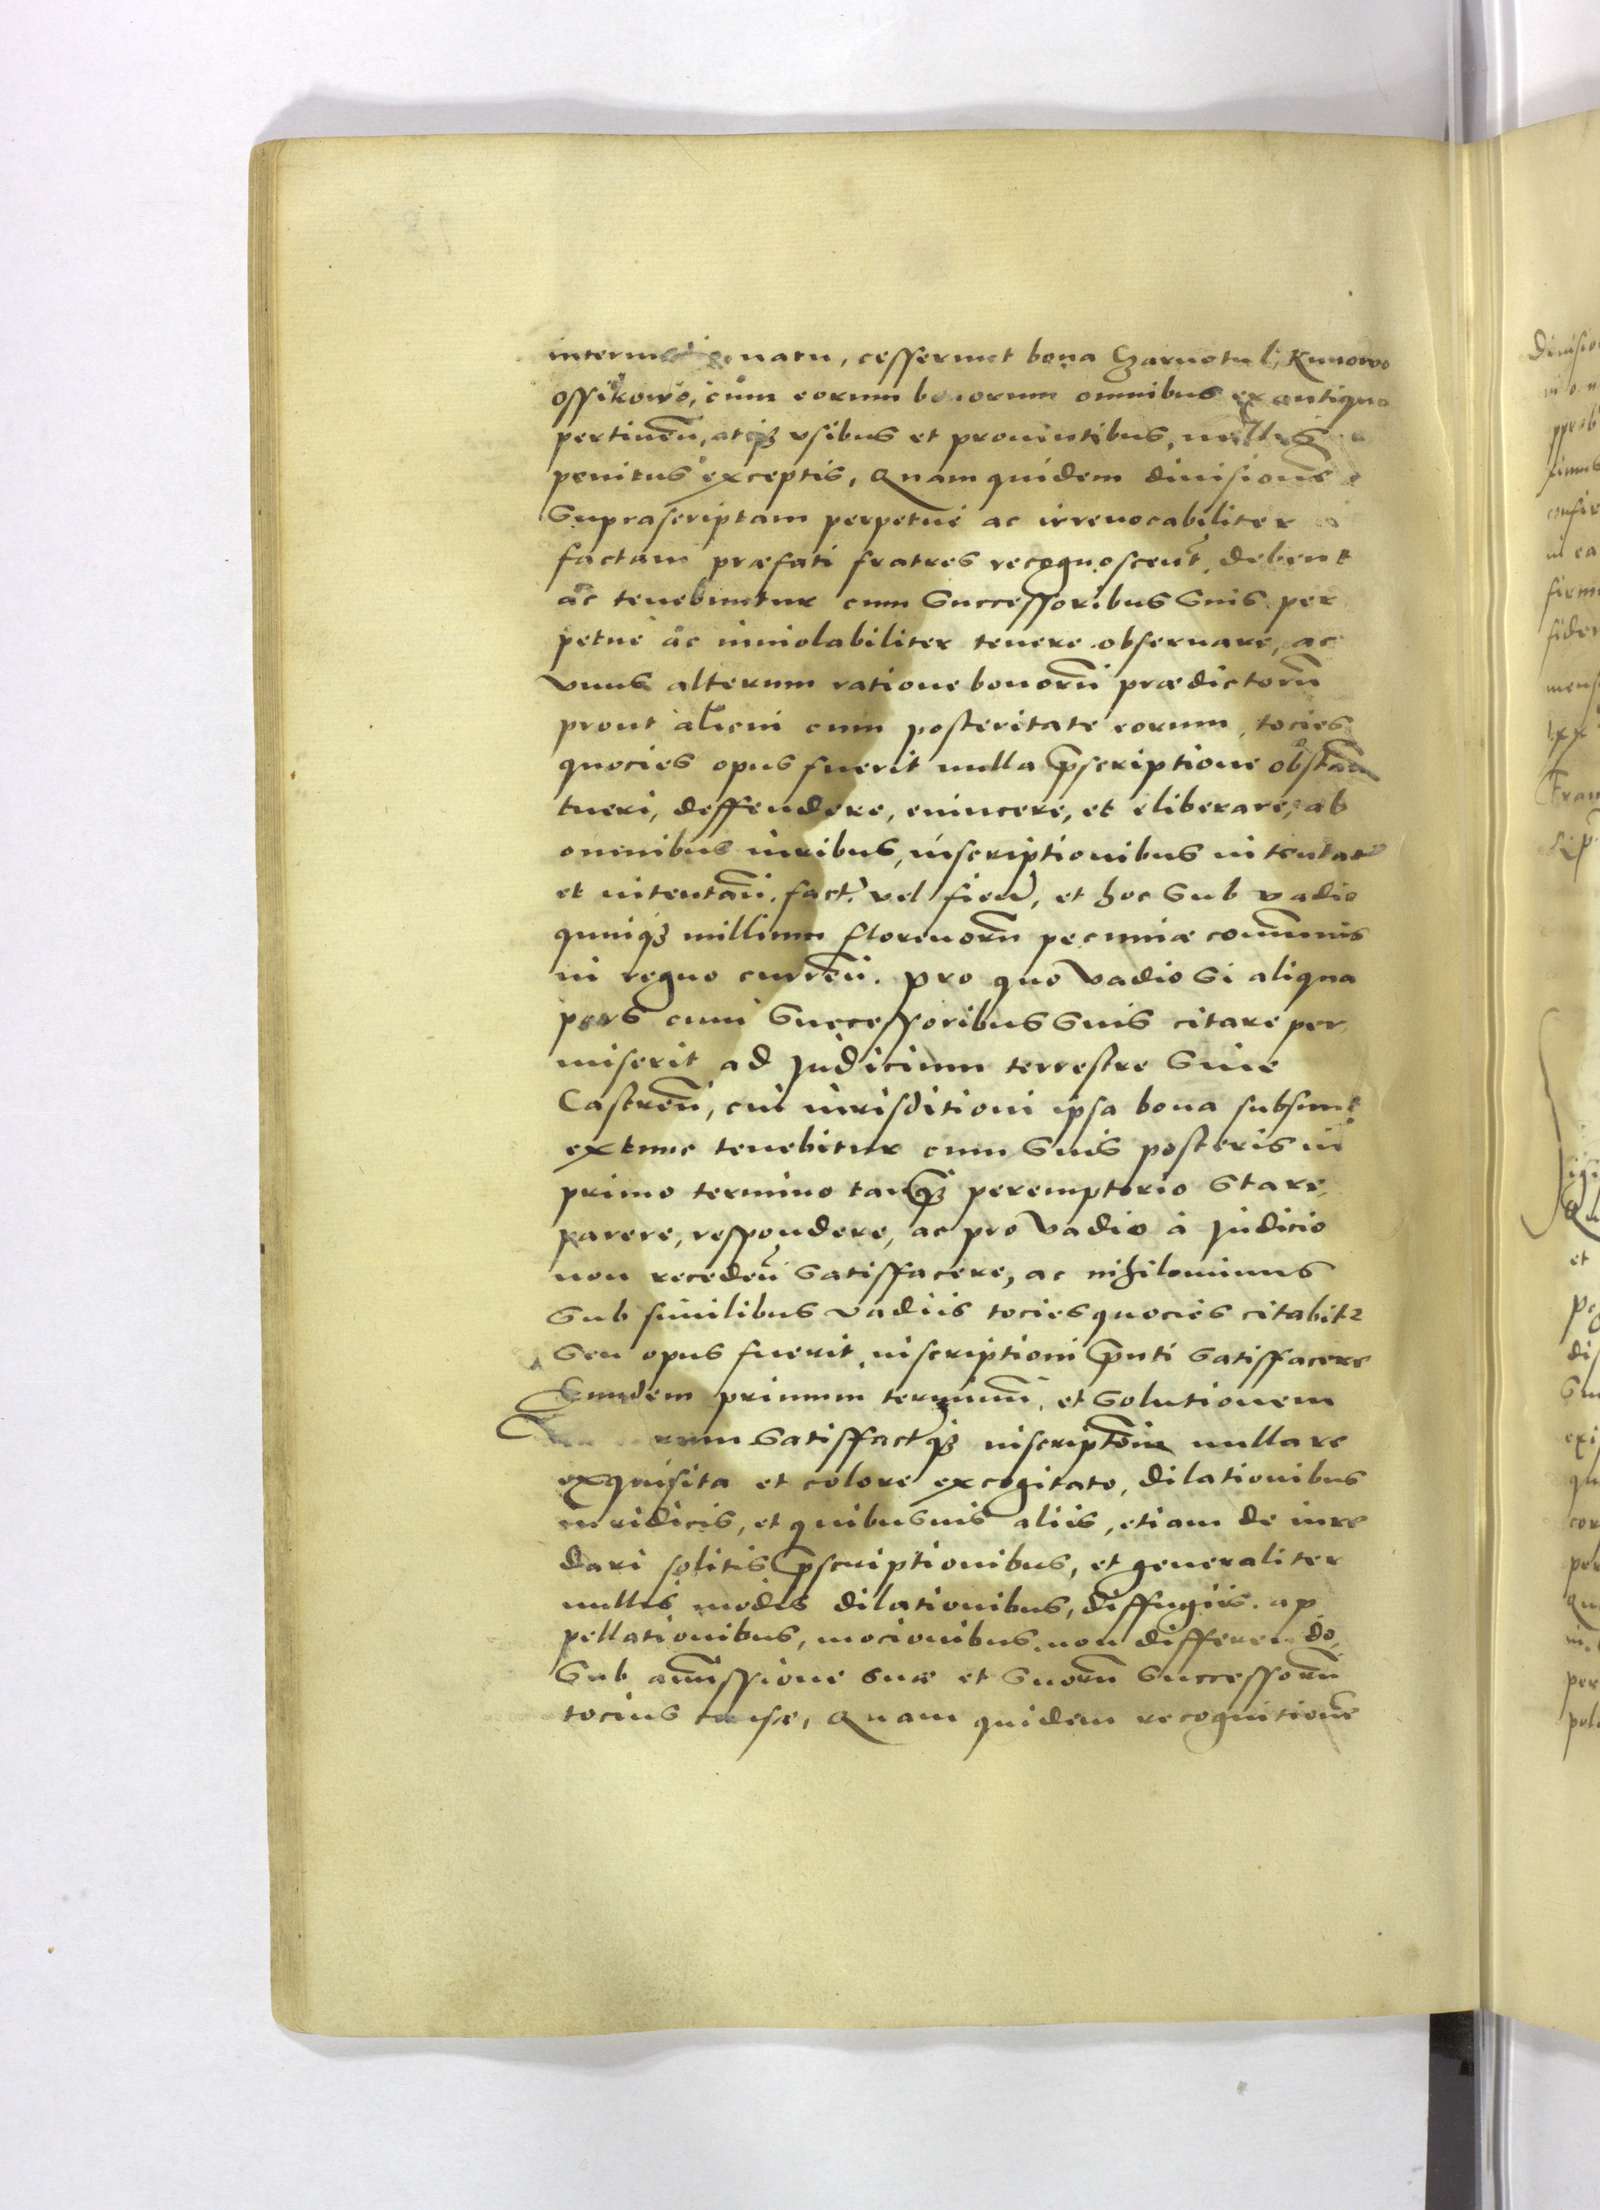 natu, cesserunt bona Czarnotul, Kunowo
Ossikowo, cum eorum bonorum omnibus ex antiquo
pertineñ, atq₃ vsibus et prouintibus, nullis
penitus exceptis, Quam quidem diuisionē
Suprascriptam perpetue ac irreuocabiliter
factam præfati fratres recognoscent, debent
ac tenebuntur cum Successoribus Suis per
petue ac inuiolabiliter tenere obseruare, ac
vnus alterum ratione bonorū prædictorū
prout alieni cum posteritate eorum, tocies
quocies opus fuerit nulla p̄scriptione obstañ
tueri, deffendere, euincere, et eliberare, ab
omnibus iuribus, inscriptionibus intentat
et intentañ. fact. vel fień, et hoc Sub vadio
quinq₃ millium florenorū pecuniæ com̄unis
in regno curreñ. pro quo vadio Si aliqua
pars cum Successoribus Suis citare per
miserit ad Judicium terrestre Siue
Castreñ, cui iurisditioni ipsa bona subsunt
extunc tenebitur cum Suis posteris in
primo termino tanq₃ peremptorio Stare,
parere, respondere, ac pro vadio à Judicio
non recedeñ Satisfacere, ac nihilominus
Sub similibus vadiis tocies quocies citabit2
Seu opus fuerit, inscriptioni p̄nti Satisfacere
Eundem primum terminū, et Solutionem
Satisfactq₃ inscriptōnē nulla re
exquisita et colore excogitato, dilationibus
iuridicis, et quibusuis aliis, etiam de iure
dari solitis p̄scriptionibus, et generaliter
nullis modis dilationibus, diffugiis, ap
pellationibus, mocionibus, non differendo,
Sub am̄issione suæ et Suorū Successorū
tocius causæ, Quam quidem recognitionē